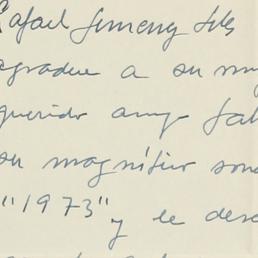 Rafael Gimeneg Siles
agradece a su muy
querido amigo Sal
su magnífico sone
"1973" y le dese